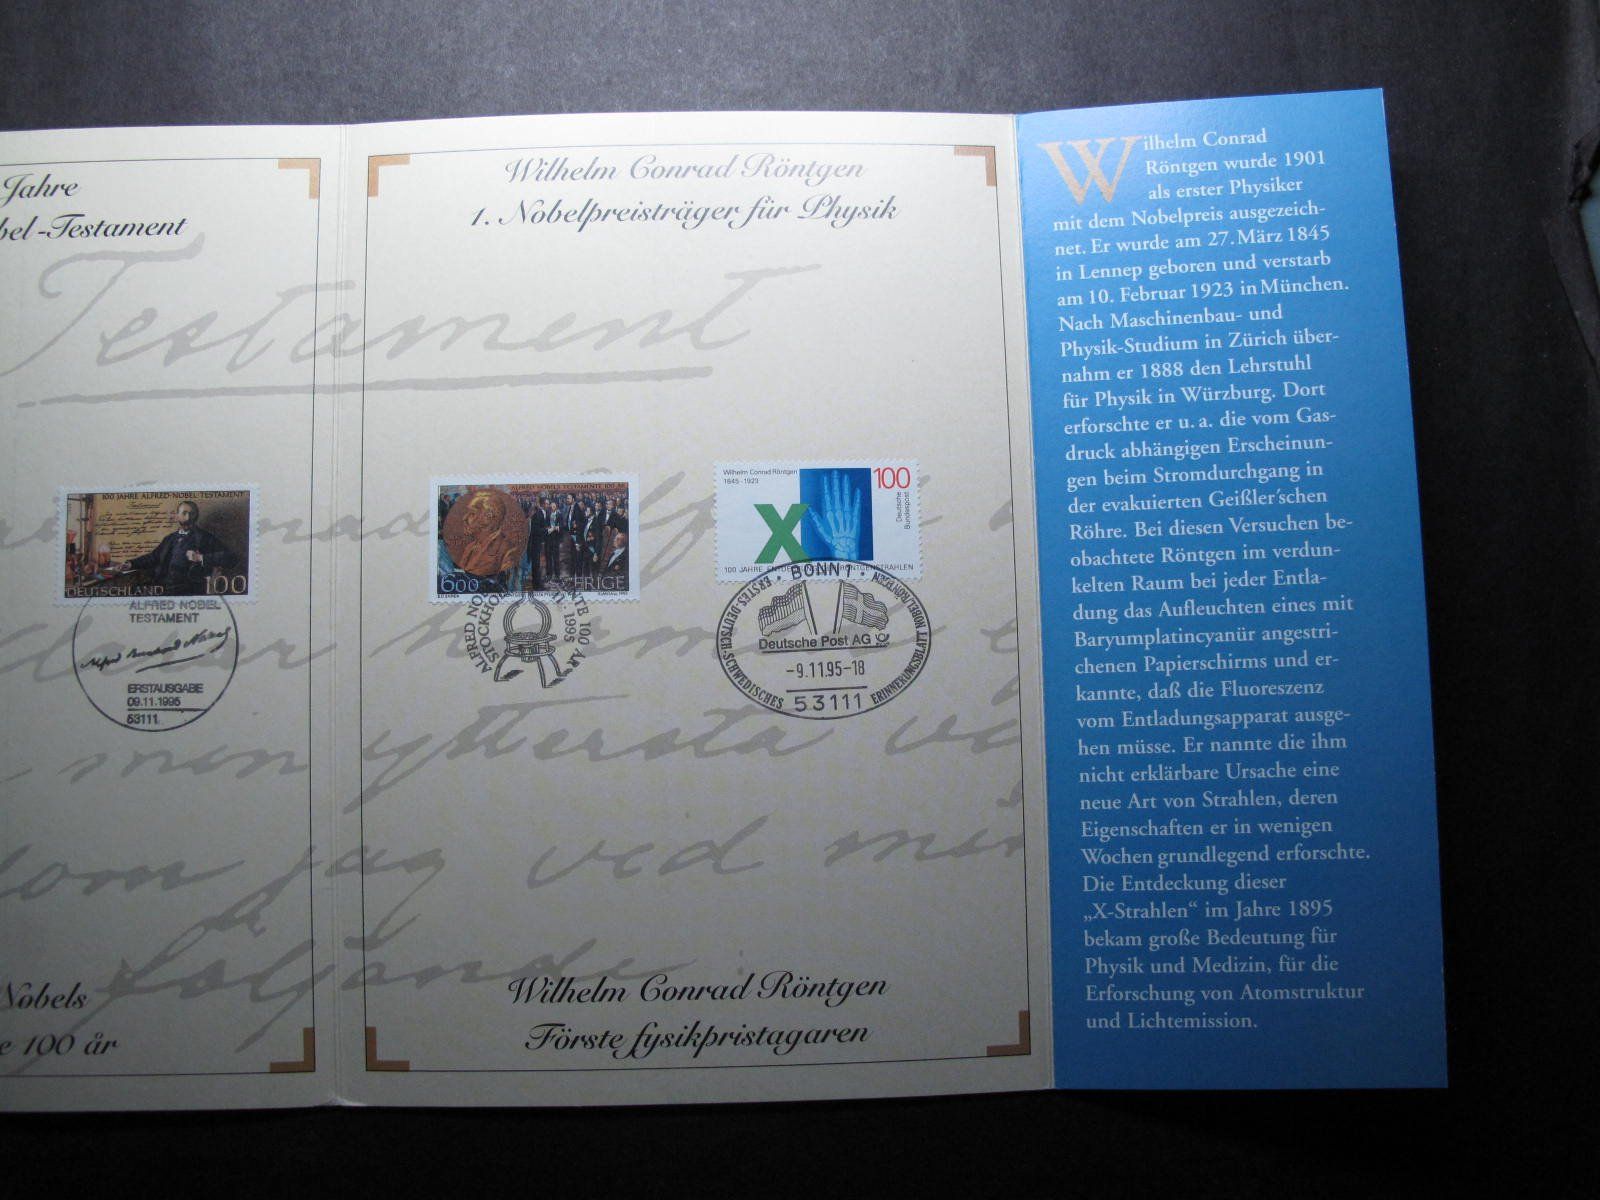 Jahre
bel-Testament
Testament
100 JAHRE ALFRED-NOBEL TESTAMENT
DEUTSCHLAND 100
ALFRED NOBEL
TESTAMENT
ERSTAUSGABE
09.11.1995
53111
men yttersta
som jag ved min
följande
Nobels
100 år
Wilhelm Conrad Röntgen
1. Nobelpreisträger für Physik
ALFRED NOBELS TESTAMENTE 100 ÅR
600 SVERIGE
ALFRED
STOCKHOL
100 ÅR
1995
Wilhelm Conrad Röntgen
1845-1923
100
Deutsche
Bundespost
X
100 JAHRE ENTDECKUNG DER RÖNTGENSTRAHLEN
BONN 1
ERSTES DEUTSCH-SCHWEDISCHES ERINNERUNGSBLATT NOBEL/RÖNTGEN
Deutsche Post AG
-9.11.95-18
53111
Wilhelm Conrad Röntgen
Förste fysikpristagaren
Wilhelm Conrad
Röntgen wurde 1901
als erster Physiker
mit dem Nobelpreis ausgezeich-
net. Er wurde am 27. März 1845
in Lennep geboren und verstarb
am 10. Februar 1923 in München.
Nach Maschinenbau- und
Physik-Studium in Zürich über-
nahm er 1888 den Lehrstuhl
für Physik in Würzburg. Dort
erforschte er u. a. die vom Gas-
druck abhängigen Erscheinun-
gen beim Stromdurchgang in
der evakuierten Geißler'schen
Röhre. Bei diesen Versuchen be-
obachtete Röntgen im verdun-
kelten Raum bei jeder Entla-
dung das Aufleuchten eines mit
Baryumplatincyanür angestri-
chenen Papierschirms und er-
kannte, daß die Fluoreszenz
vom Entladungsapparat ausge-
hen müsse. Er nannte die ihm
nicht erklärbare Ursache eine
neue Art von Strahlen, deren
Eigenschaften er in wenigen
Wochen grundlegend erforschte.
Die Entdeckung dieser
„X-Strahlen“ im Jahre 1895
bekam große Bedeutung für
Physik und Medizin, für die
Erforschung von Atomstruktur
und Lichtemission.